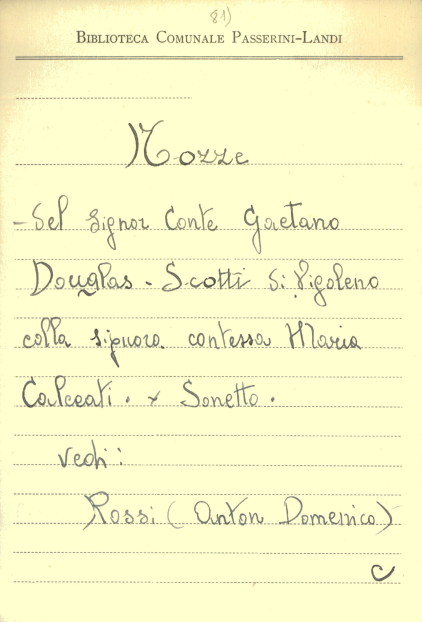 81)
BIBLIOTECA COMUNALE PASSERINI-LANDI
Nozze
- del signor Conte Gaetano
Douglas - Scotti di Vigoleno
colla signora contessa Maria
Calceati. x Sonetto.
vedi:
Rossi (Anton Domenico)
C